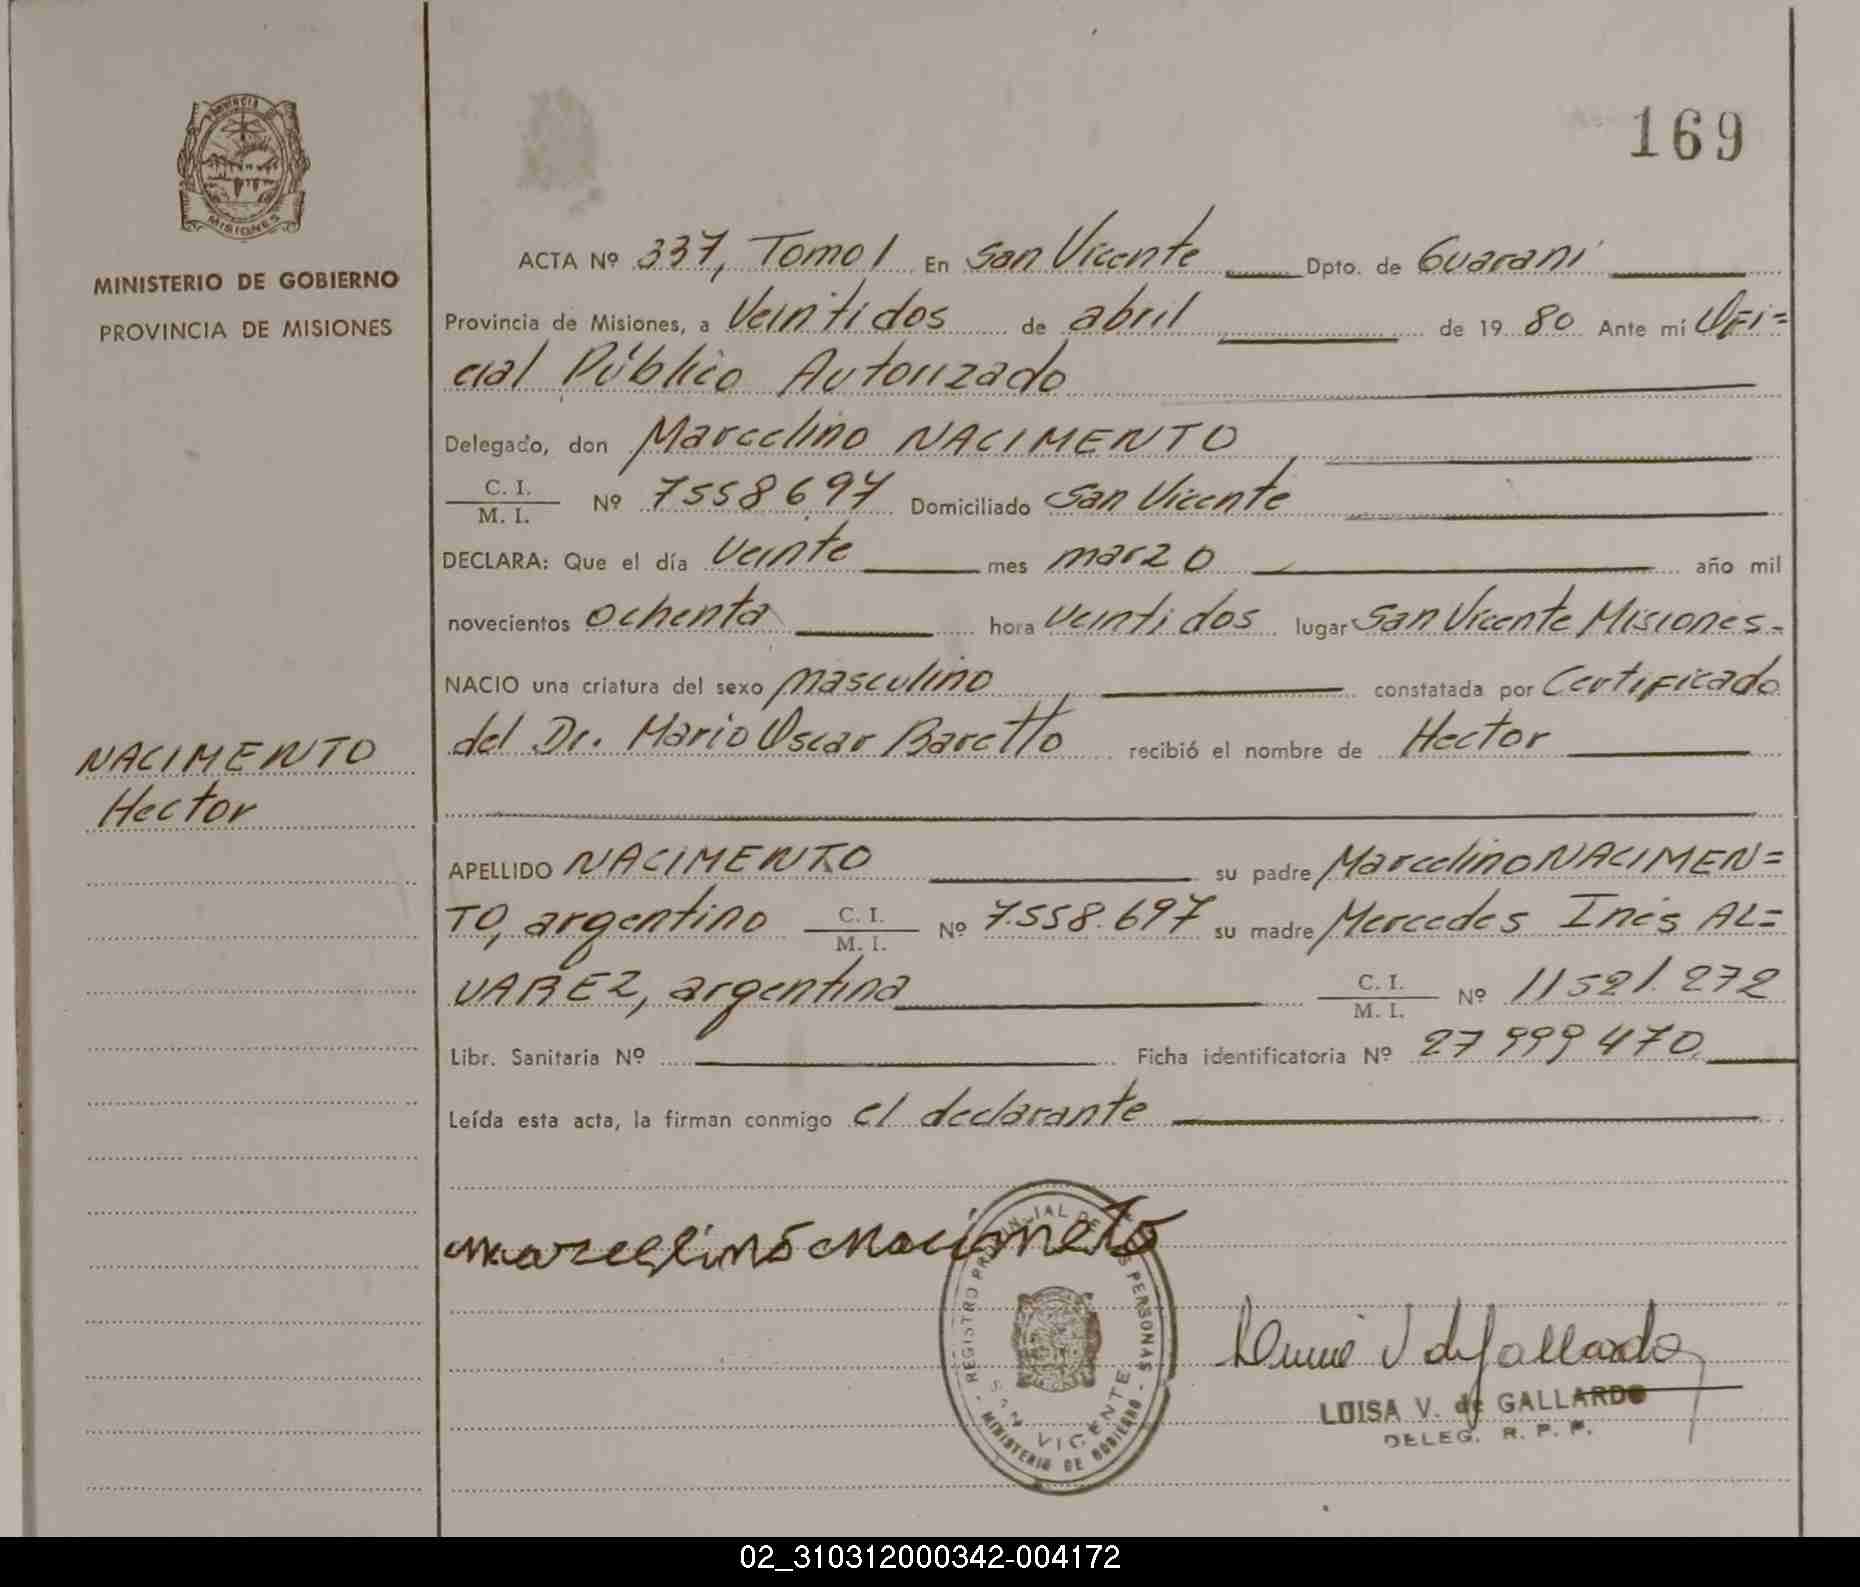 169
PROVINCIA DE
MISIONES
MINISTERIO DE GOBIERNO
PROVINCIA DE MISIONES
NACIMENTO
Hector
ACTA Nº 337, Tomo I En San Vicente Dpto. de Guaraní
Provincia de Misiones, a Veintidos de abril de 1980 Ante mí Ofi=
cial Público Autorizado
Delegado, don Marcelino NACIMENTO
C. I.
M. I. Nº 7558697 Domiciliado San Vicente
DECLARA: Que el día veinte mes marzo año mil
novecientos ochenta hora veintidos lugar San Vicente Misiones-
NACIO una criatura del sexo masculino, constatada por Certificado
del Dr. Mario Oscar Baretto recibió el nombre de Hector
APELLIDO NACIMENTO su padre Marcelino NACIMEN=
TO, argentino C. I. M. I. Nº 7.558.697 su madre Mercedes Inés AL=
VAREZ, argentina C. I. M. I. Nº 11521.272
Libr. Sanitaria Nº Ficha identificatoria Nº 27 999 470
Leída esta acta, la firman conmigo el declarante
Marcelino Nacimeto
REGISTRO PROVINCIAL DE LAS PERSONAS
SAN VICENTE
- MINISTERIO DE GOBIERNO -
V de Gallardo
LUISA V. de GALLARDO
DELEG. R. P. P.
02_310312000342-004172